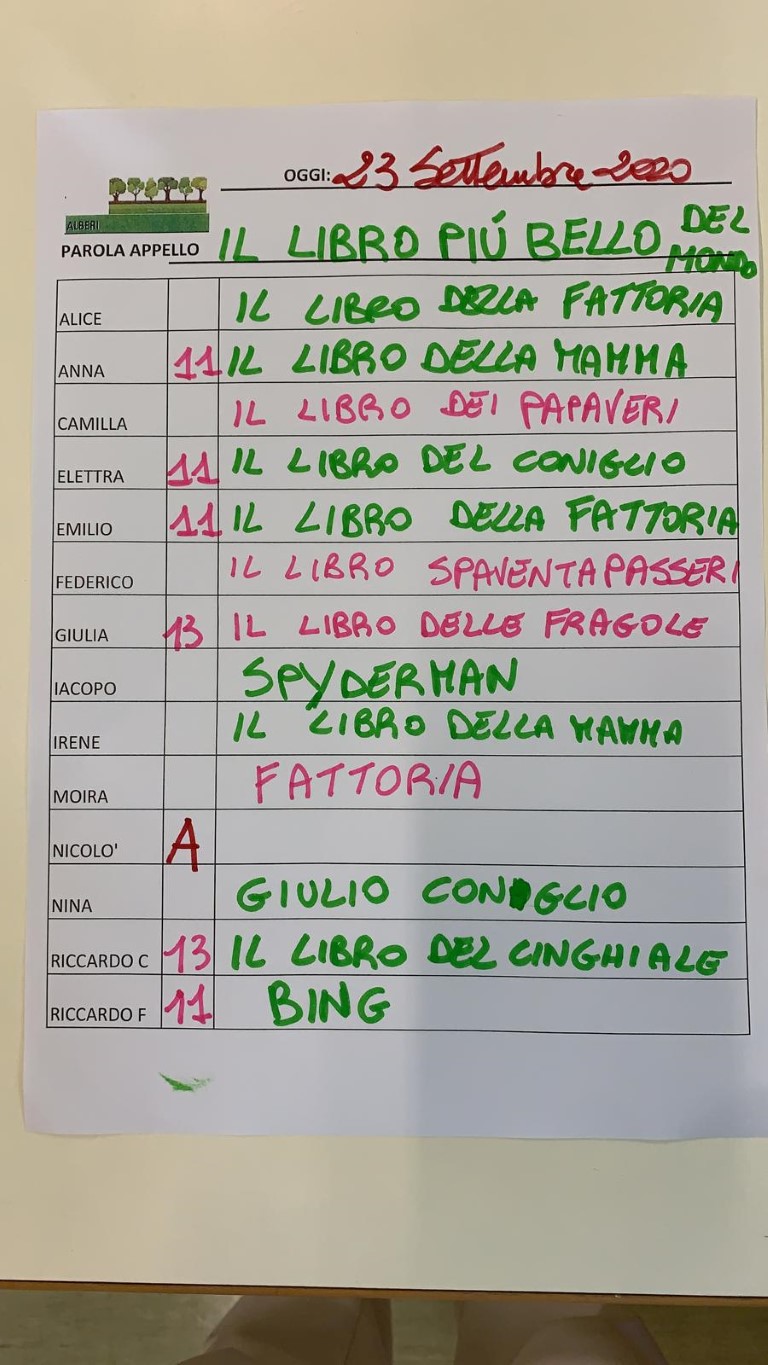 OGGI: 23 Settembre 2020
ALBERI
PAROLA APPELLO IL LIBRO PIÚ BELLO DEL
MONDO
ALICE IL LIBRO DELLA FATTORIA
ANNA 11 IL LIBRO DELLA MAMMA
CAMILLA IL LIBRO DEI PAPAVERI
ELETTRA 11 IL LIBRO DEL CONIGLIO
EMILIO 11 IL LIBRO DELLA FATTORIA
FEDERICO IL LIBRO SPAVENTAPASSERI
GIULIA 13 IL LIBRO DELLE FRAGOLE
IACOPO SPYDERMAN
IRENE IL LIBRO DELLA MAMMA
MOIRA FATTORIA
NICOLO' A
NINA GIULIO CONIGLIO
RICCARDO C 13 IL LIBRO DEL CINGHIALE
RICCARDO F 11 BING